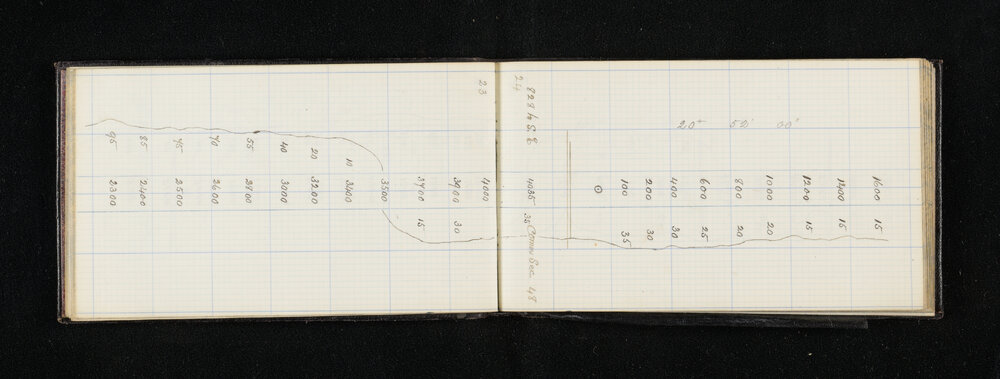 20° 52' 00"
1600 15
1400 15
1200 15
1000 20
800 20
600 25
400 30
200 30
100 35
828 S. E. 4035 35 Corner Sec 48
24
23
4000
3900 30
3700 15
3500
10 3400
20 3200
40 3000
55 2800
70 2600
75 2500
85 2400
95 2300